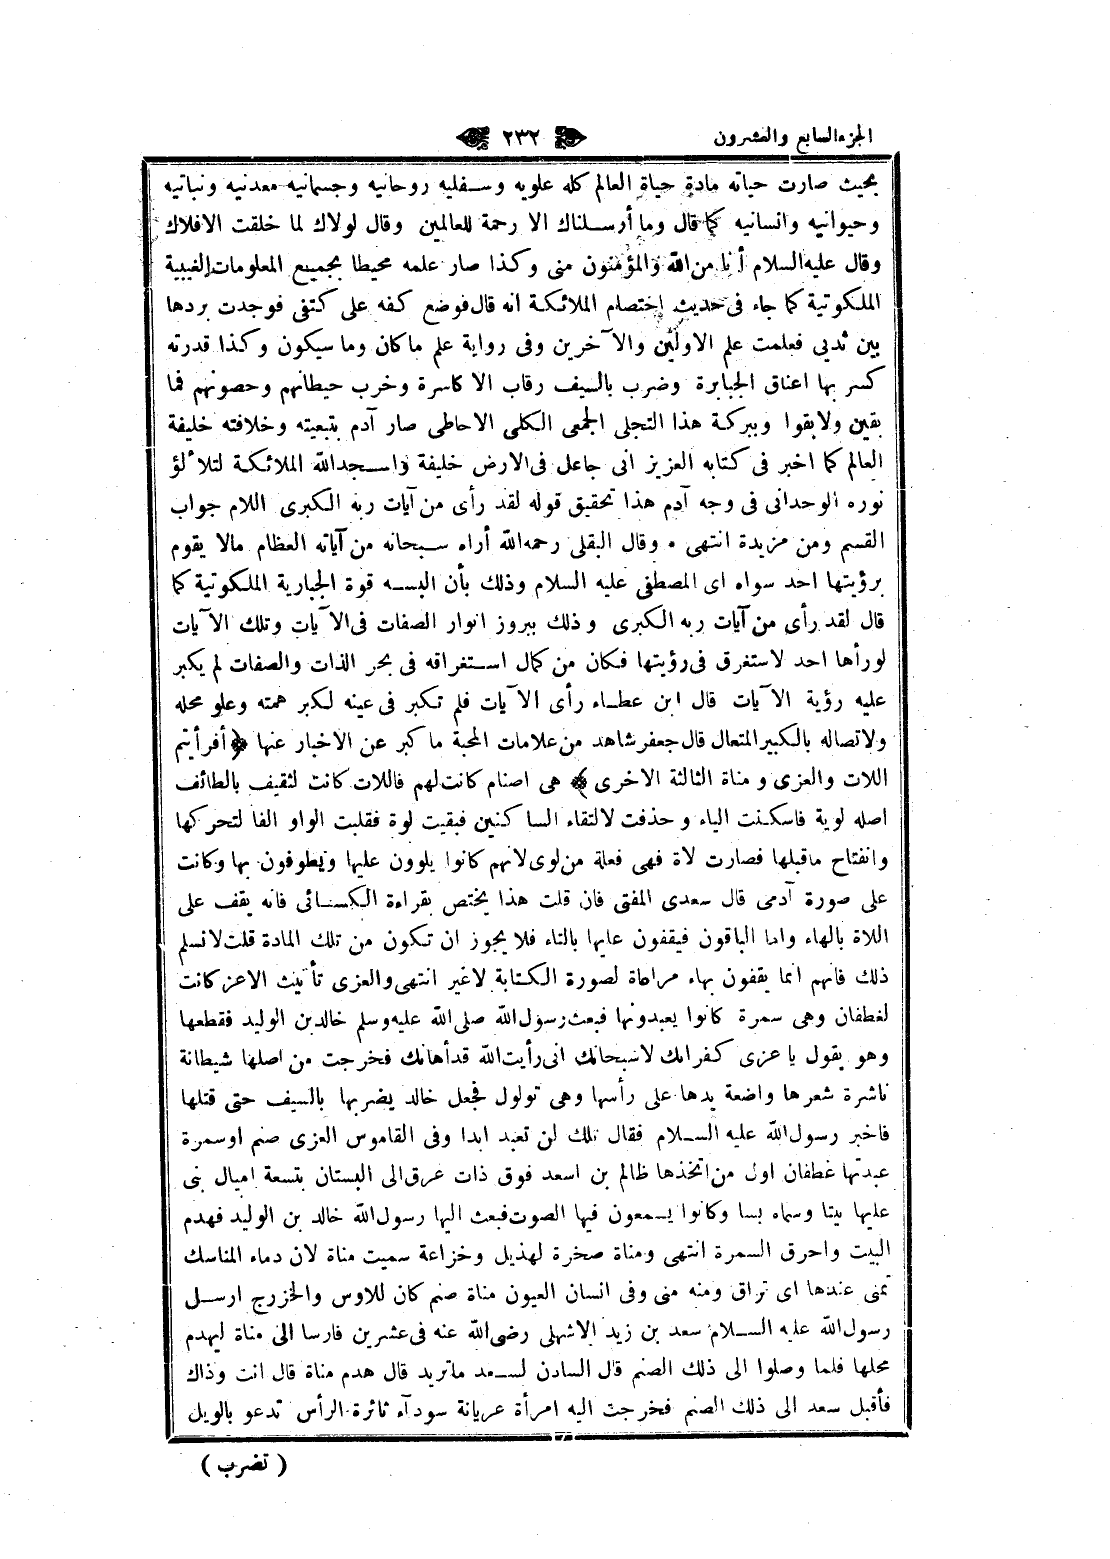 الجزء السابع والعشرون
٢٣٢
بحيث صارت حياته مادة حياة العالم كله علويه وسفليه روحانيه وجسمانيه معدنيه ونباتيه
وحيوانيه وانسانيه كما قال وما أرسلناك الا رحمة للعالمين وقال لولاك لما خلقت الافلاك
وقال عليه السلام أنا من الله والمؤمنون منى وكذا صار علمه محيطا بجميع المعلومات الغيبية
الملكوتية كما جاء فى حديث اختصام الملائكة انه قال فوضع كفه على كتفى فوجدت بردها
بين ثديى فعلمت علم الاولين والآخرين وفى رواية علم ما كان وما سيكون وكذا قدرته
كسر بها اعناق الجبابرة وضرب بالسيف رقاب الاكاسرة وخرب حيطانهم وحصونهم فما
بقين ولا بقوا وببركة هذا التجلى الجمعى الكلى الاحاطى صار آدم بتبعيته وخلافته خليفة
العالم كما اخبر فى كتابه العزيز انى جاعل فى الارض خليفة واسجد الله الملائكة لتلألؤ
نوره الوحدانى فى وجه آدم هذا تحقيق قوله لقد رأى من آيات ربه الكبرى اللام جواب
القسم ومن مزيدة انتهى • وقال البقلى رحمه الله أراه سبحانه من آياته العظام مالا يقوم
برؤيتها احد سواه اى المصطفى عليه السلام وذلك بأن البسه قوة الجبارية الملكوتية كما
قال لقد رأى من آيات ربه الكبرى وذلك ببروز انوار الصفات فى الآيات وتلك الآيات
لو رأها احد لاستغرق فى رؤيتها فكان من كمال استغراقه فى بحر الذات والصفات لم يكبر
عليه رؤية الآيات قال ابن عطاء رأى الآيات فلم تكبر فى عينه لكبر همته وعلو محله
ولاتصاله بالكبير المتعال قال جعفر شاهد من علامات المحبة ما كبر عن الاخبار عنها ﴿ أفرأيتم
اللات والعزى ومناة الثالثة الاخرى ﴾ هى اصنام كانت لهم فاللات كانت لثقيف بالطائف
اصله لوية فاسكنت الياء وحذفت لالتقاء الساكنين فبقيت لوة فقلبت الواو الفا لتحركها
وانفتاح ماقبلها فصارت لاة فهى فعلة من لوى لانهم كانوا يلوون عليها ويطوفون بها وكانت
على صورة آدمى قال سعدى المفتى فان قلت هذا يختص بقراءة الكسائى فانه يقف على
اللاة بالهاء واما الباقون فيقفون عليها بالتاء فلا يجوز ان تكون من تلك المادة قلت لانسلم
ذلك فانهم انما يقفون بهاء مراعاة لصورة الكتابة لاغير انتهى والعزى تأنيث الاعز كانت
لغطفان وهى سمرة كانوا يعبدونها فبعث رسول الله صلى الله عليه وسلم خالد بن الوليد فقطعها
وهو يقول يا عزى كفرانك لا سبحانك انى رأيت الله قد أهانك فخرجت من اصلها شيطانة
ناشرة شعرها واضعة يدها على رأسها وهى تولول فجعل خالد يضربها بالسيف حتى قتلها
فاخبر رسول الله عليه السلام فقال تلك لن تعبد ابدا وفى القاموس العزى صنم او سمرة
عبدتها غطفان اول من اتخذها ظالم بن اسعد فوق ذات عرق الى البستان بتسعة اميال بنى
عليها بيتا وسماه بسا وكانوا يسمعون فيها الصوت فبعث اليها رسول الله خالد بن الوليد فهدم
البيت واحرق السمرة انتهى ومناة صخرة لهذيل وخزاعة سميت مناة لان دماء المناسك
تمنى عندها اى تراق ومنه منى وفى انسان العيون مناة صنم كان للاوس والخزرج ارسل
رسول الله عليه السلام سعد بن زيد الاشهلى رضى الله عنه فى عشرين فارسا الى مناة ليهدم
محلها فلما وصلوا الى ذلك الصنم قال السادن لسعد ماتريد قال هدم مناة قال انت وذاك
فأقبل سعد الى ذلك الصنم فخرجت اليه امرأة عريانة سودآء ثائرة الرأس تدعو بالويل
( تضرب )